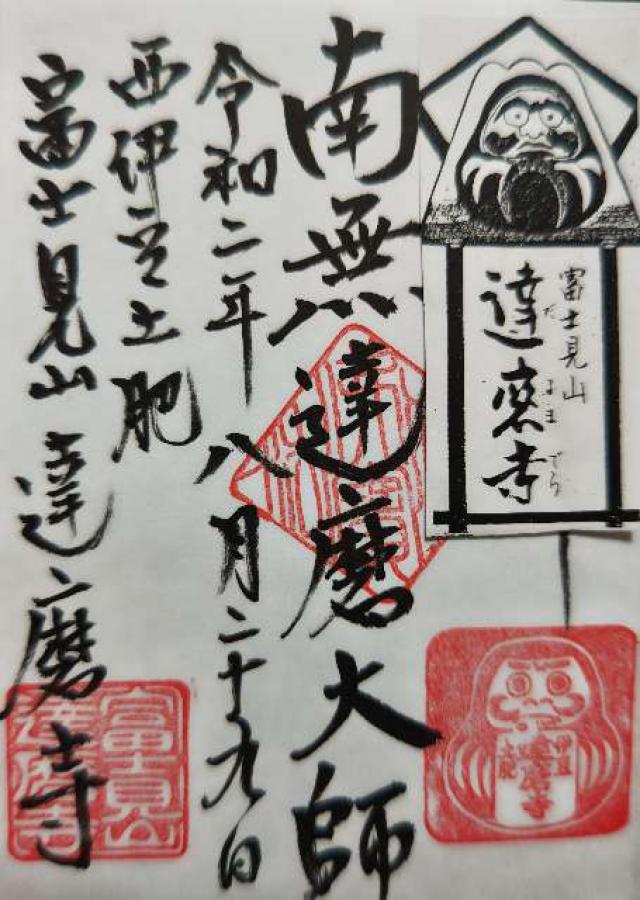 富士見山
達磨寺
だ る ま でら
南無達磨大師
令和二年八月二十九日
西伊豆土肥
富士見山達磨寺
伊豆
達磨寺
土肥
富士見山
達磨寺